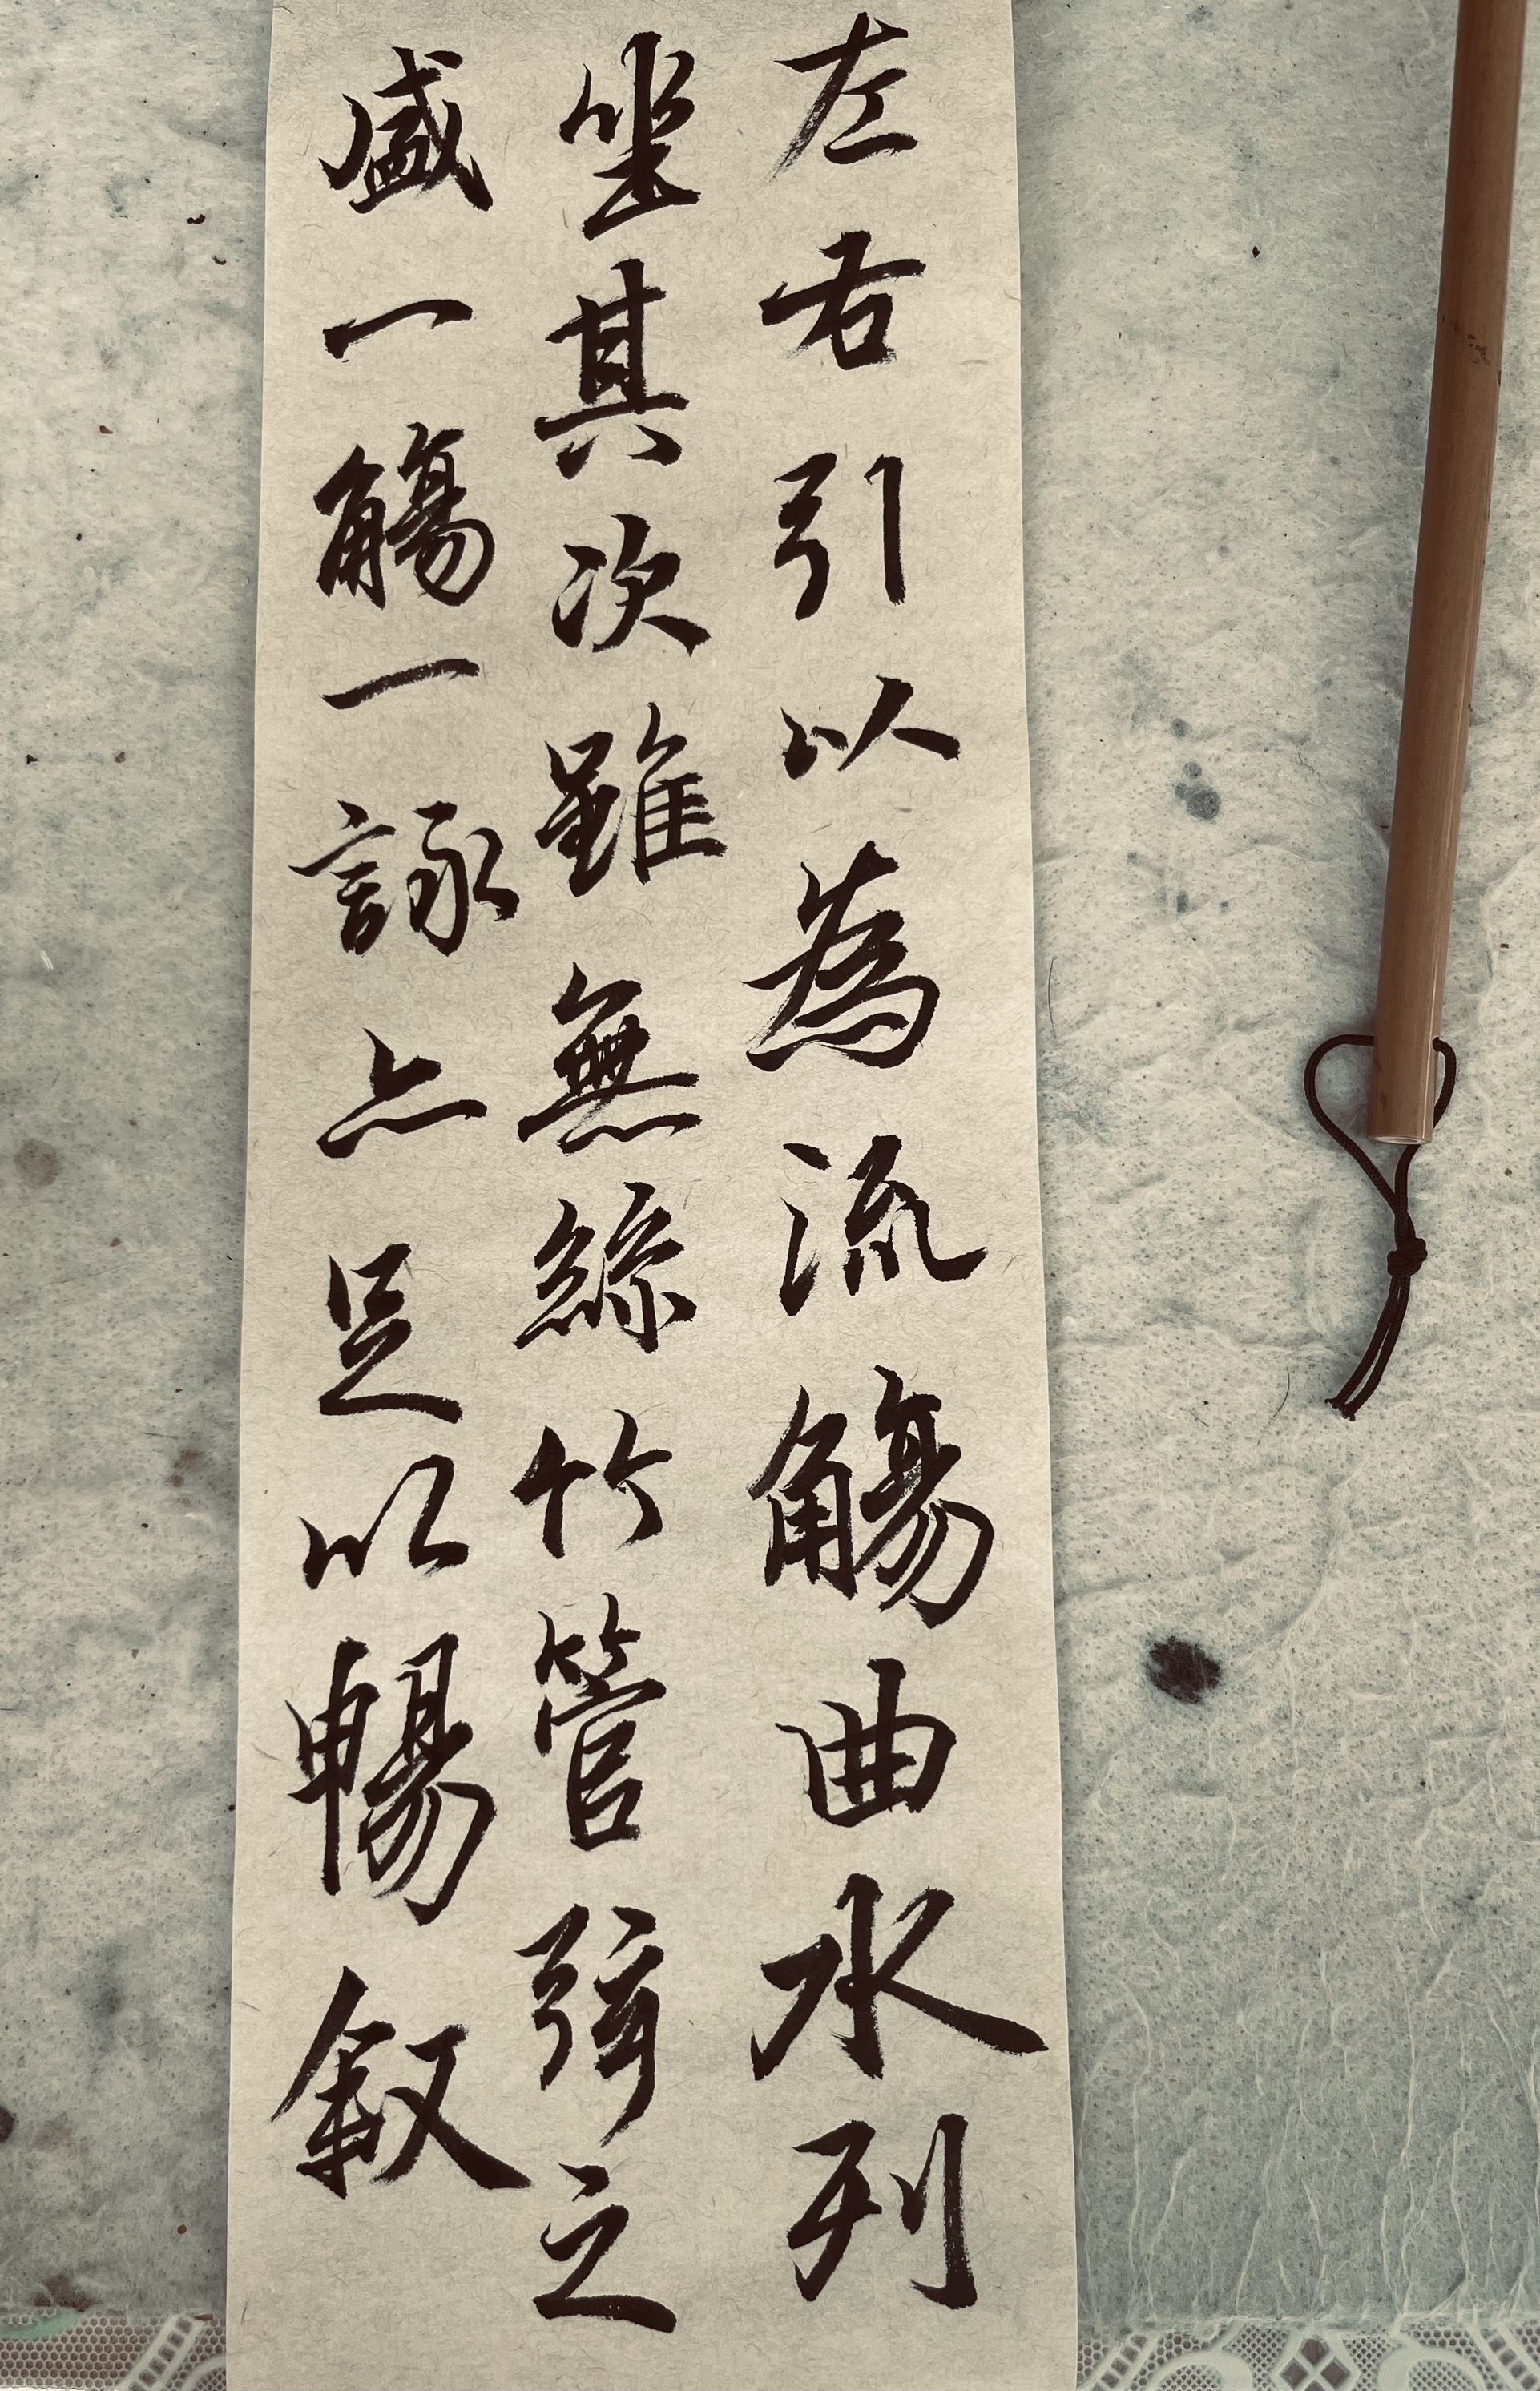 左右引以為流觴曲水列
坐其次雖無絲竹管弦之
盛一觴一詠亦足以暢敘